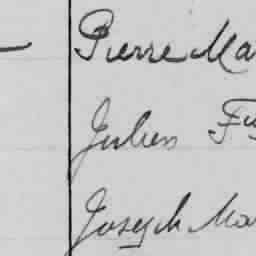 Pierre Ma
Julien
Joseph Ma